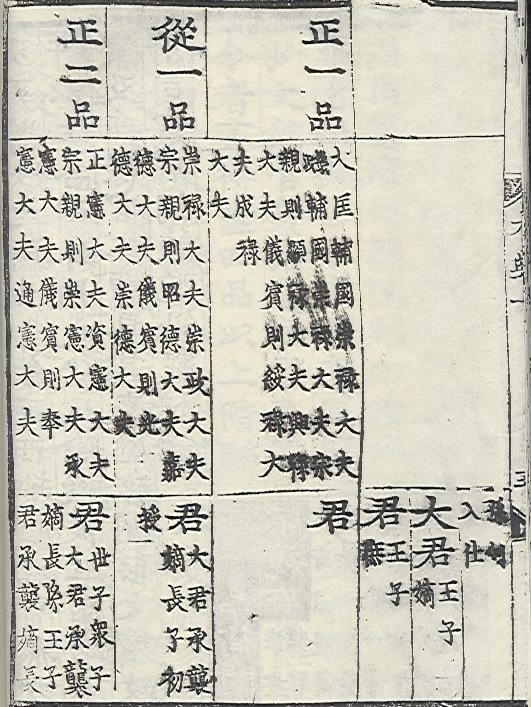 入仕
大君
王子
嫡
君
王子
庶
正一品
大匡輔國崇祿大夫
輔國崇祿大夫宗
親則顯祿大夫興祿
大夫儀賓則綏祿大
夫成祿
大夫
君
從一品
崇祿大夫崇政大夫
宗親則昭德大夫嘉
德大夫儀賓則光
德大夫崇德大夫
君
大君承襲
嫡長子初
授
正二品
正憲大夫資憲大夫
宗親則崇憲大夫承
憲大夫儀賓則奉
憲大夫通憲大夫
君
世子衆子
大君承襲
嫡長孫王子
君承襲嫡長